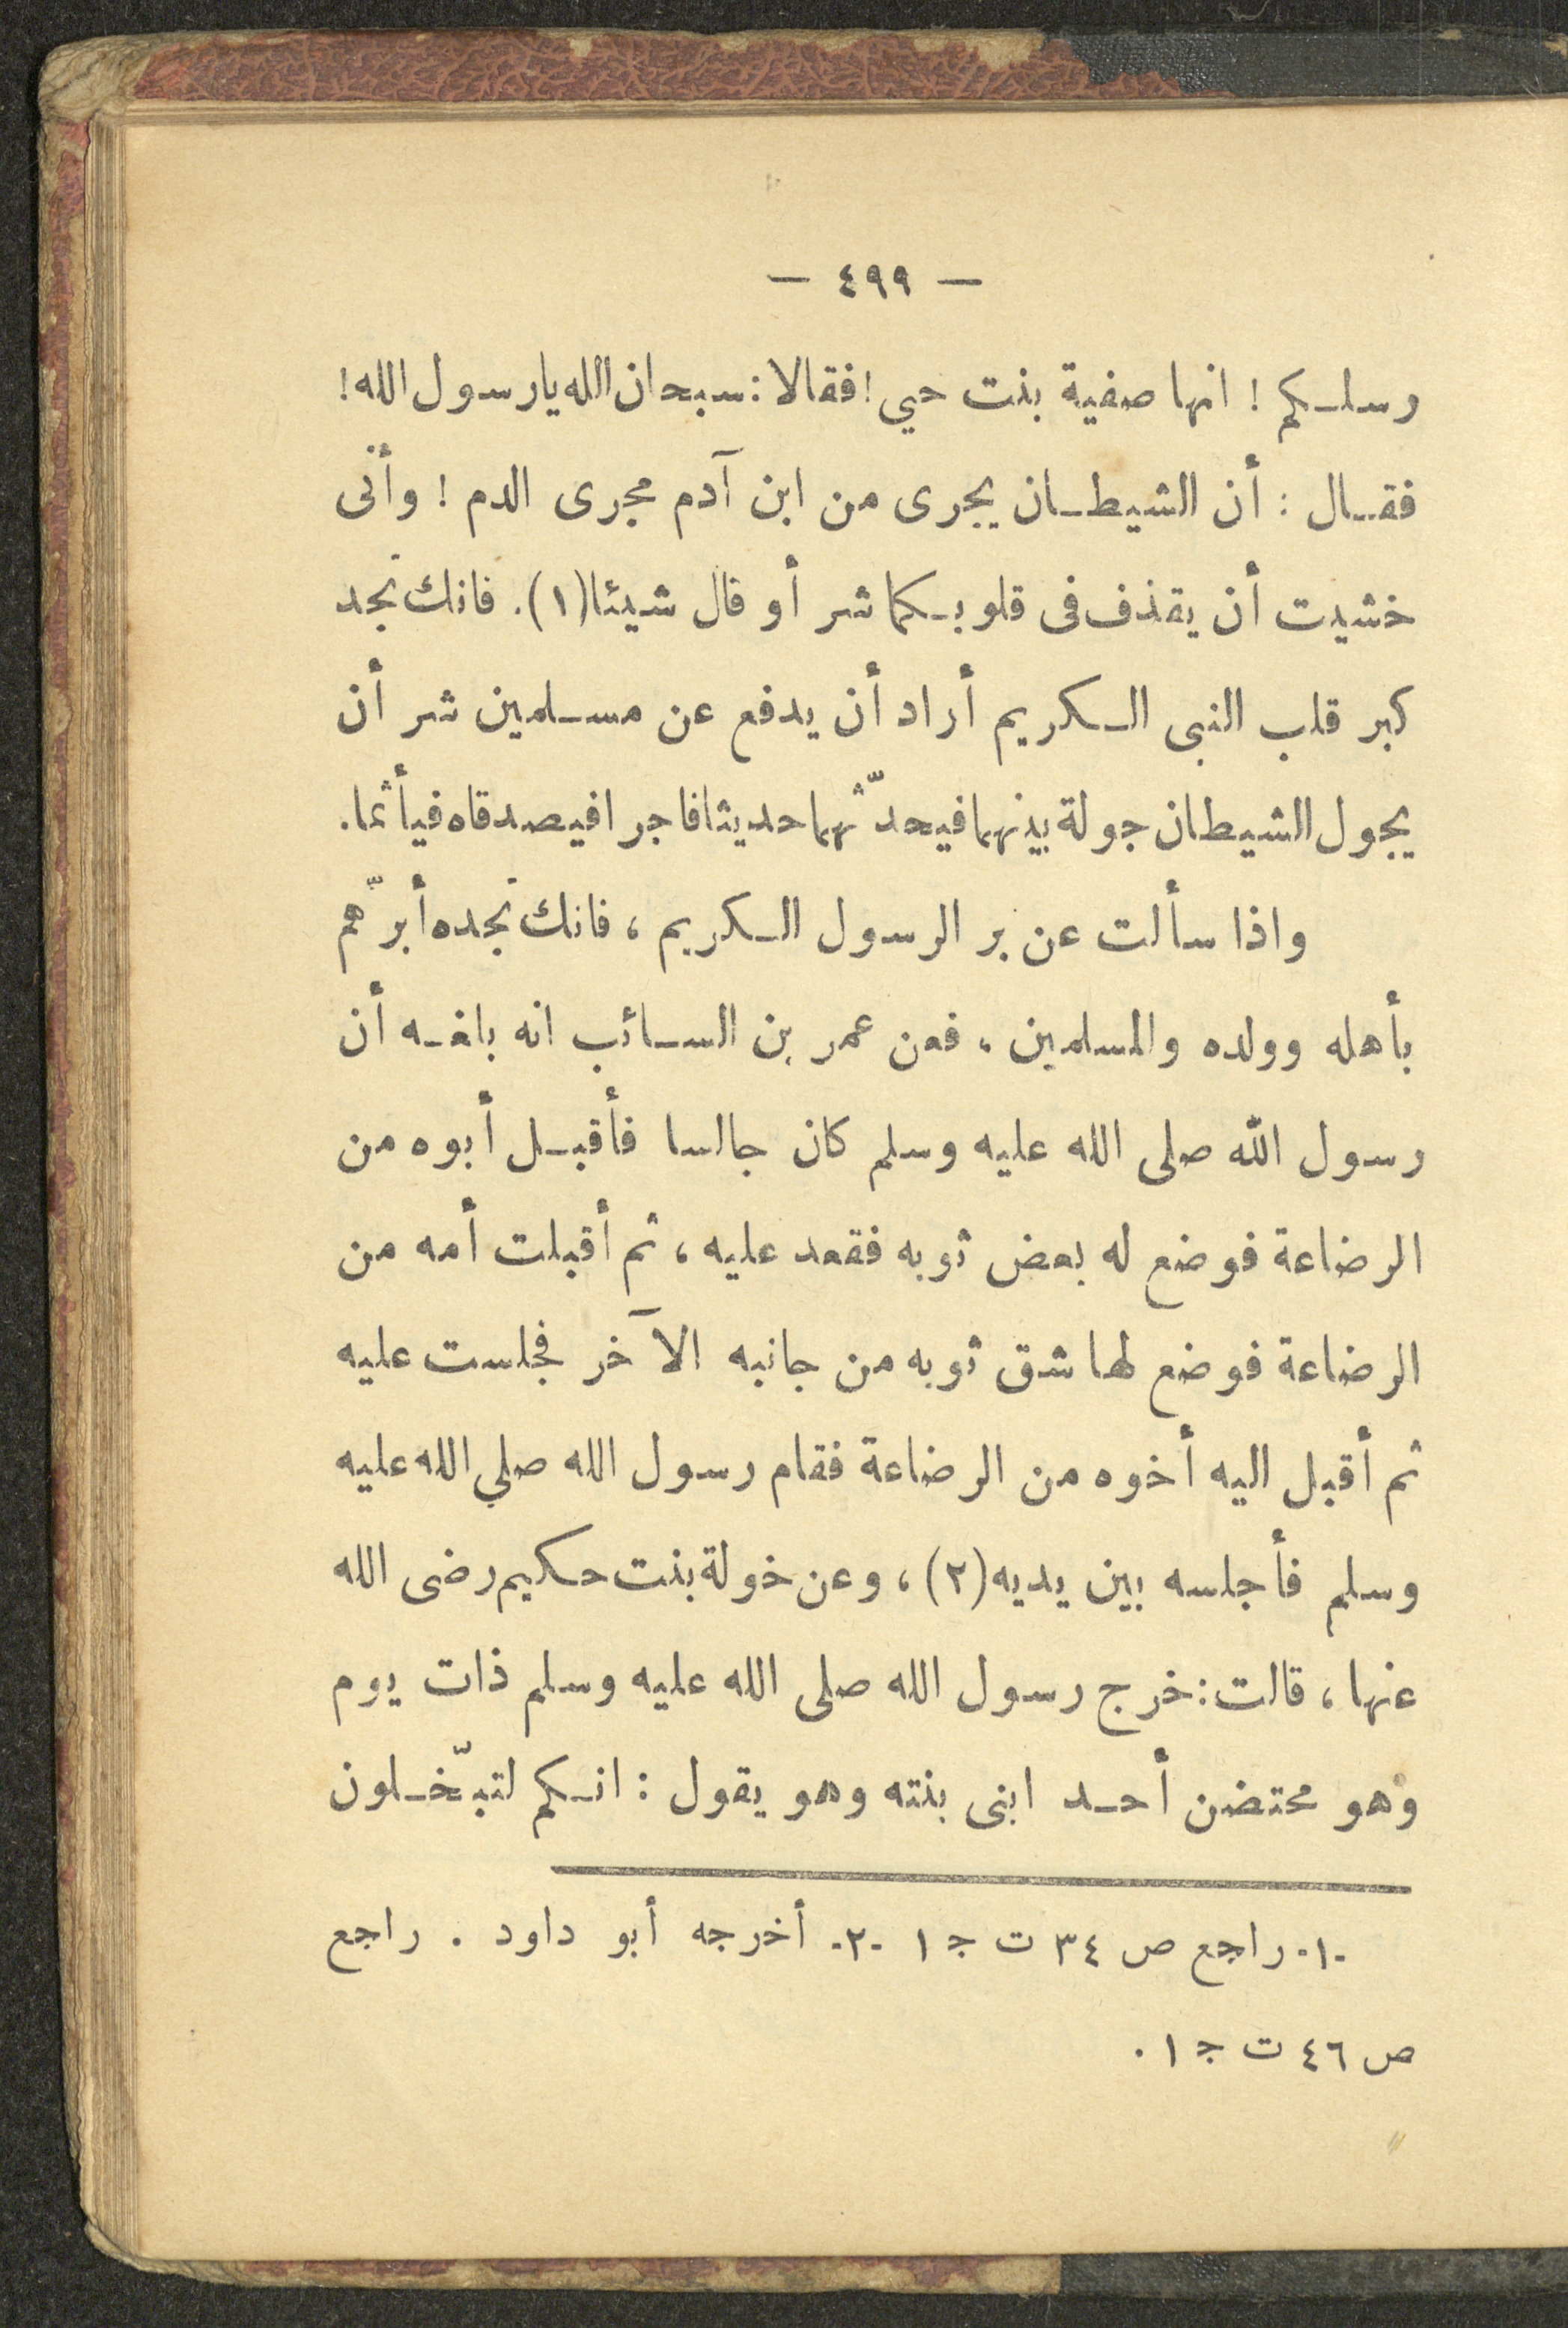 — ٤٩٩ —
رسلكم ! انها صفية بنت حيي ! فقالا : سبحان الله يارسول الله !
فقال : أن الشيطان يجرى من ابن آدم مجرى الدم ! وأنى
خشيت أن يقذف فى قلوبكما شر أو قال شيئا (١) . فانك تجد
كبر قلب النبى الكريم أراد أن يدفع عن مسلمين شر أن
يجول الشيطان جولة بينهما فيحدّثهما حديثا فاجرا فيصدقاه فيأثما .
واذا سألت عن بر الرسول الكريم ، فانك تجده أبرّهم
بأهله وولده والمسلمين ، فعن عمر بن السائب انه بلغه أن
رسول الله صلى الله عليه وسلم كان جالسا فأقبل أبوه من
الرضاعة فوضع له بعض ثوبه فقعد عليه ، ثم أقبلت أمه من
الرضاعة فوضع لها شق ثوبه من جانبه الآخر فجلست عليه
ثم أقبل اليه أخوه من الرضاعة فقام رسول الله صلي الله عليه
وسلم فأجلسه بين يديه (٢) ، وعن خولة بنت حكيم رضى الله
عنها ، قالت : خرج رسول الله صلى الله عليه وسلم ذات يوم
وهو محتضن أحد ابنى بنته وهو يقول : انكم لتبخّلون
-١- راجع ص ٣٤ ت ج ١ -٢- أخرجه أبو داود . راجع
ص ٤٦ ت ج ١ .